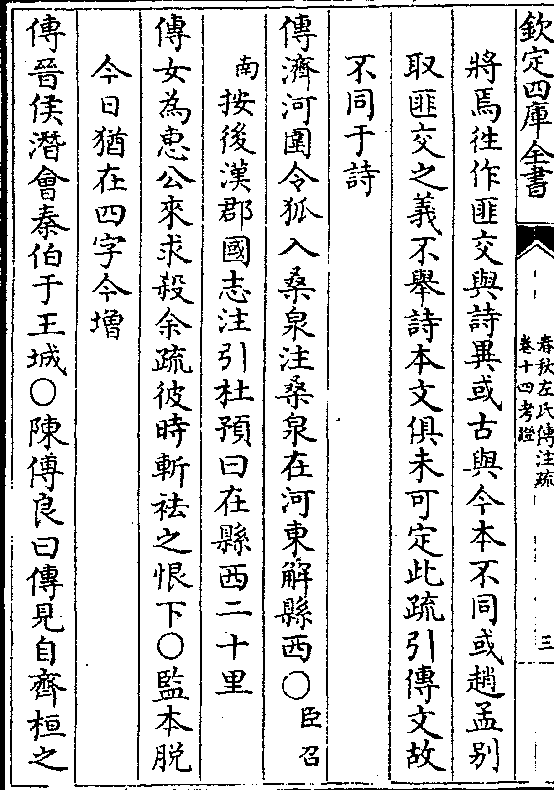 欽定四庫全書
春秋左氏傳注疏
卷十四考證
三
將焉往作匪交與詩異或古與今本不同或趙孟别
取匪交之義不舉詩本文俱未可定此疏引傳文故
不同于詩
傳濟河圍令狐入桑泉注桑泉在河東解縣西○臣召
南按後漢郡國志注引杜預曰在縣西二十里
傳女為惠公來求殺余疏彼時斬袪之恨下○監本脱
今日猶在四字今增
傳晉侯潛會秦伯于王城○陳傅良曰傳見自齊桓之